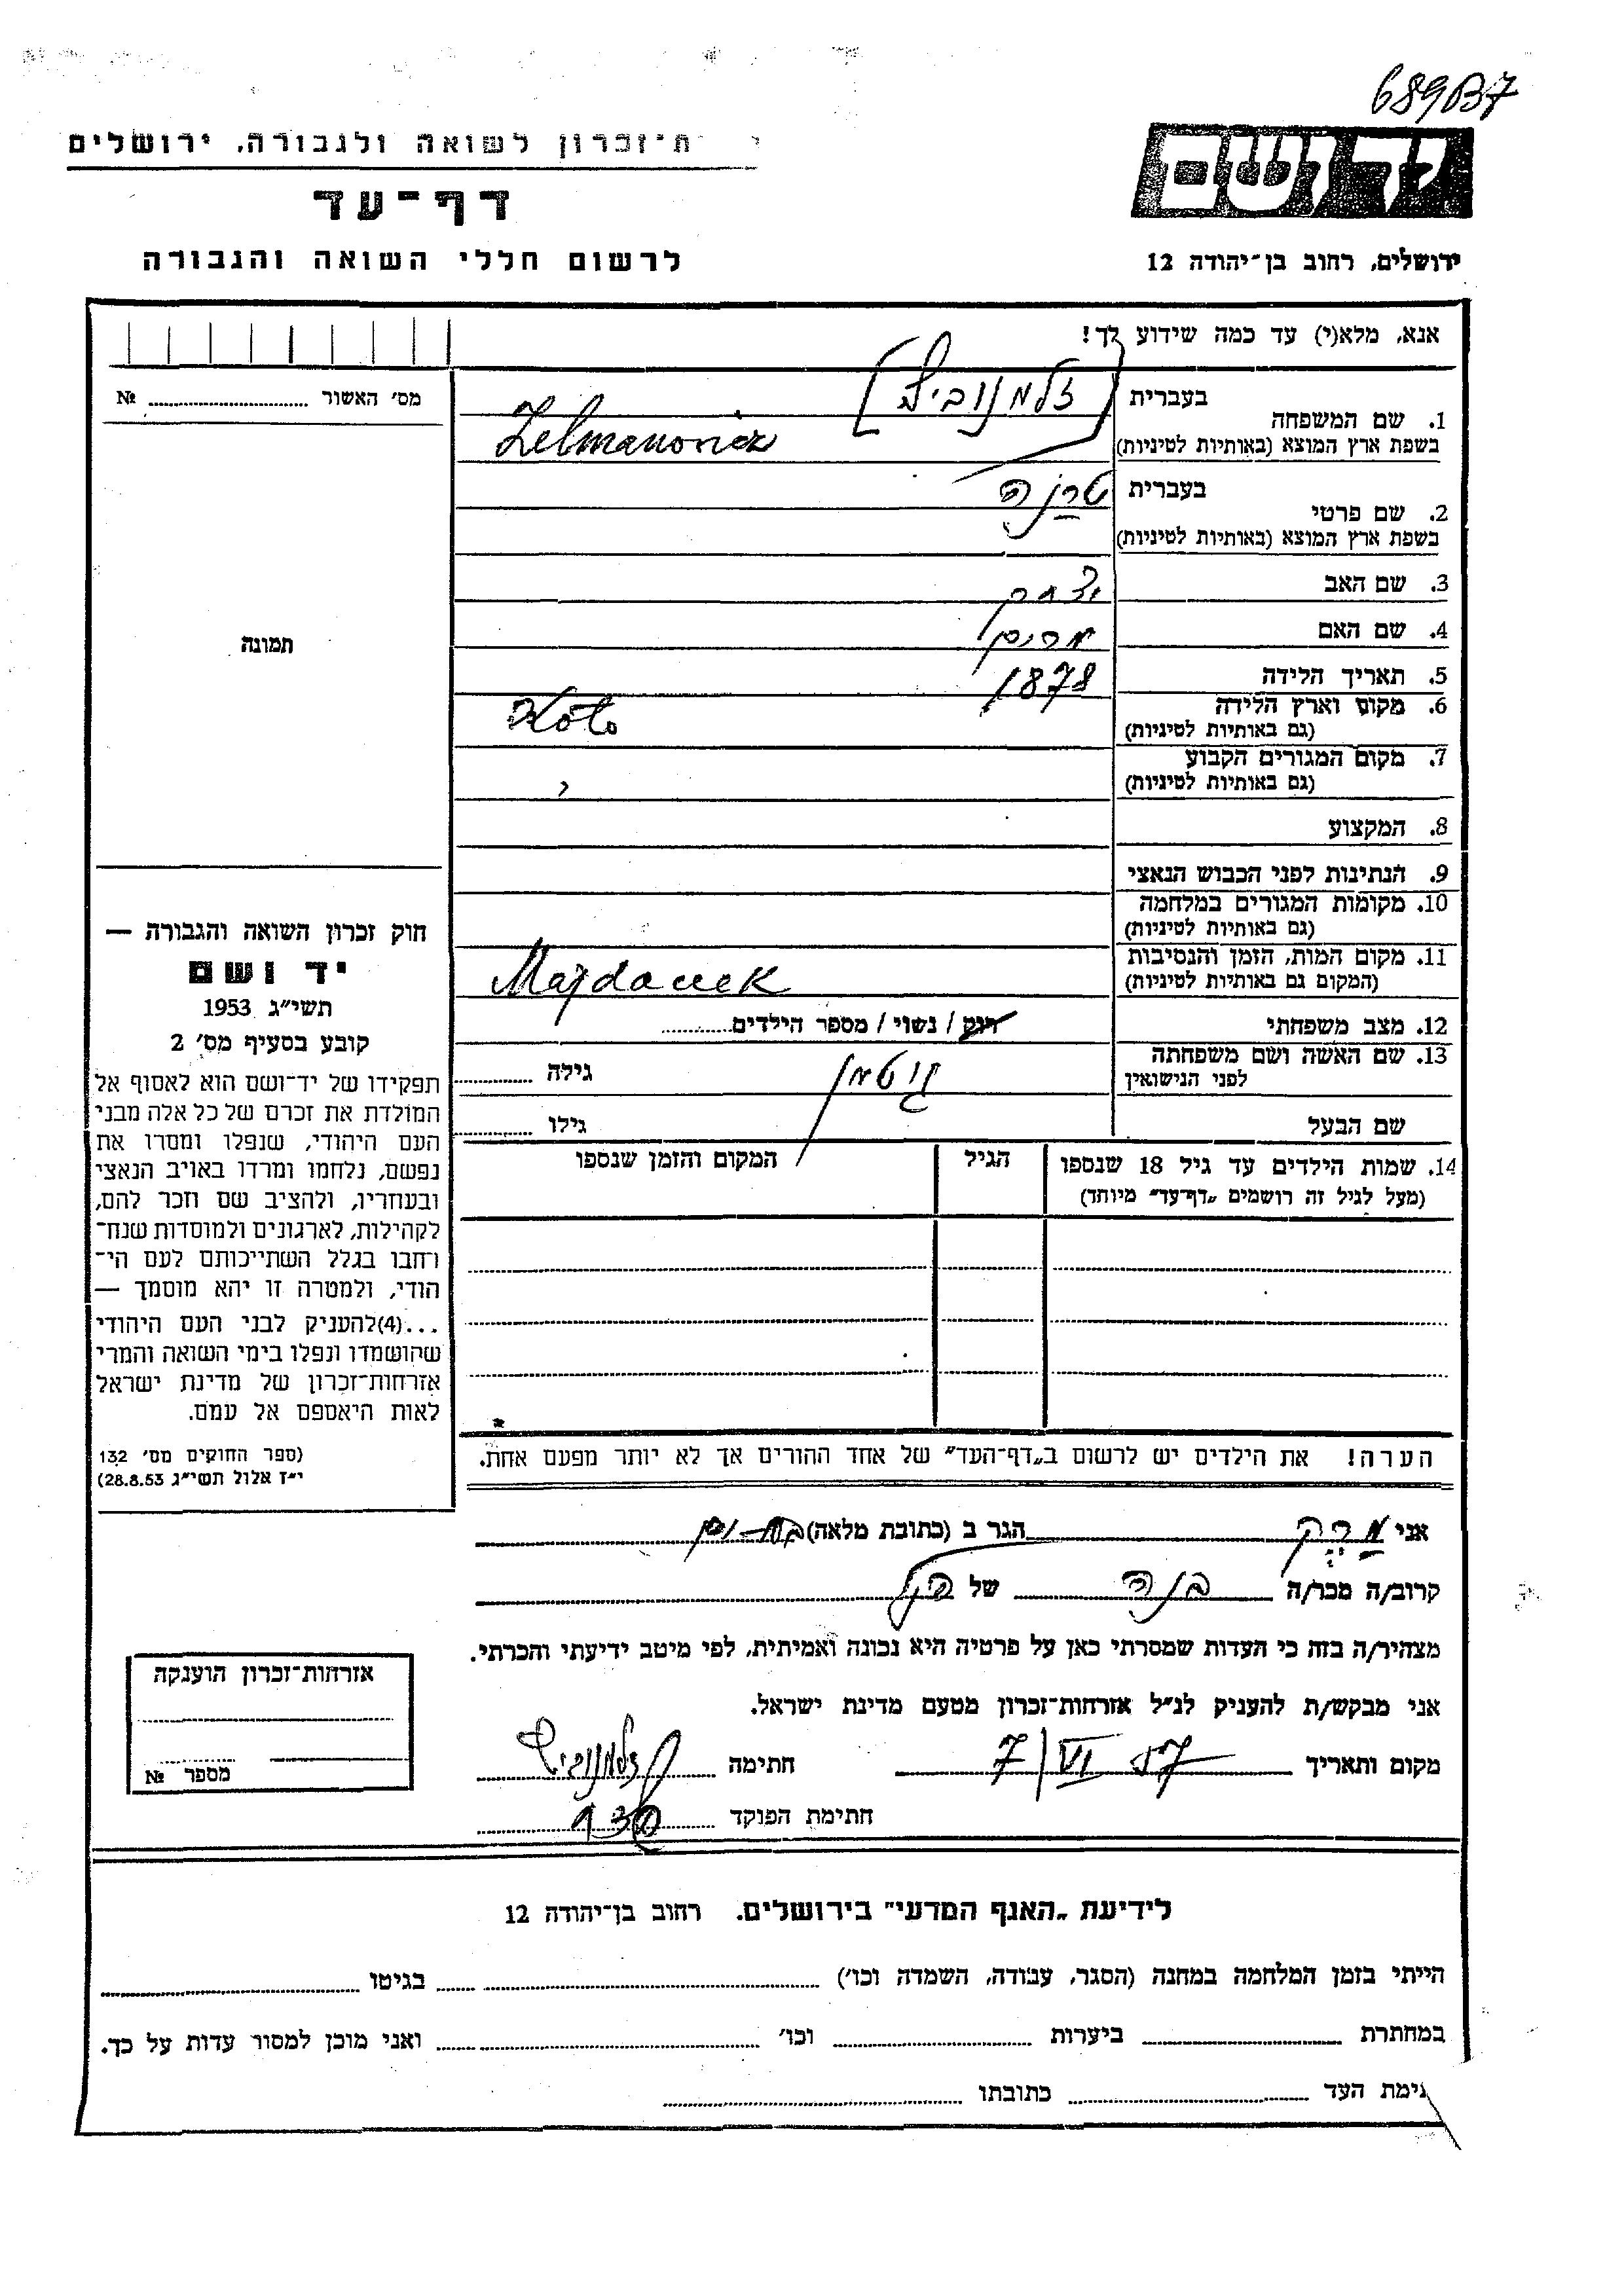 689B7
ת־זכרון לשואה ולגבורה, ירושלים
יד ושם
דף־עד
לרשום חללי השואה והגבורה
ירושלים, רחוב בן־יהודה 12
אנא, מלא(י) עד כמה שידוע לך!
מס׳ האשור № 
1. שם המשפחה
בעברית זלמנוביץ
בשפת ארץ המוצא (באותיות לטיניות) Zelmanovicz
2. שם פרטי
בעברית
בשפת ארץ המוצא (באותיות לטיניות)
3. שם האב יצחק
4. שם האם מרים
תמונה
5. תאריך הלידה 1878
6. מקום וארץ הלידה
(גם באותיות לטיניות)
7. מקום המגורים הקבוע
(גם באותיות לטיניות)
8. המקצוע
9. הנתינות לפני הכבוש הנאצי
10. מקומות המגורים במלחמה
(גם באותיות לטיניות)
11. מקום המות, הזמן והנסיבות
(המקום גם באותיות לטיניות) Majdanek
12. מצב משפחתי רוק / נשוי / מספר הילדים
13. שם האשה ושם משפחתה
לפני הנישואין גוטמן גילה
שם הבעל גילו
14. שמות הילדים עד גיל 18 שנספו
(מעל לגיל זה רושמים „דף־עד" מיוחד)
הגיל
המקום והזמן שנספו
הערה! את הילדים יש לרשום ב„דף־העד" של אחד ההורים אך לא יותר מפעם אחת.
חוק זכרון השואה והגבורה —
יד ושם
תשי״ג 1953
קובע בסעיף מס׳ 2
תפקידו של יד־ושם הוא לאסוף אל
המולדת את זכרם של כל אלה מבני
העם היהודי, שנפלו ומסרו את
נפשם, נלחמו ומרדו באויב הנאצי
ובעוזריו, ולהציב שם וזכר להם,
לקהילות, לארגונים ולמוסדות שנח־
רחבו בגלל השתייכותם לעם הי־
הודי, ולמטרה זו יהא מוסמך —
...(4)להעניק לבני העם היהודי
שהושמדו ונפלו בימי השואה והמרי
אזרחות־זכרון של מדינת ישראל
לאות היאספם אל עמם.
(ספר החוקים מס׳ 132
י״ז אלול תשי״ג 28.8.53)
אני הגר ב (כתובת מלאה) בת־ים
קרוב/ה מכר/ה בנה של הנ״ל
מצהיר/ה בזה כי העדות שמסרתי כאן על פרטיה היא נכונה ואמיתית, לפי מיטב ידיעתי והכרתי.
אני מבקש/ת להעניק לנ״ל אזרחות־זכרון מטעם מדינת ישראל.
מקום ותאריך 7/VI 57 חתימה זלמנוביץ
חתימת הפוקד
אזרחות־זכרון הוענקה
מספר №
לידיעת „האגף המדעי" בירושלים. רחוב בן־יהודה 12
הייתי בזמן המלחמה במחנה (הסגר, עבודה, השמדה וכו׳) בגיטו
במחתרת ביערות וכו׳ ואני מוכן למסור עדות על כך.
ימת העד כתובתו